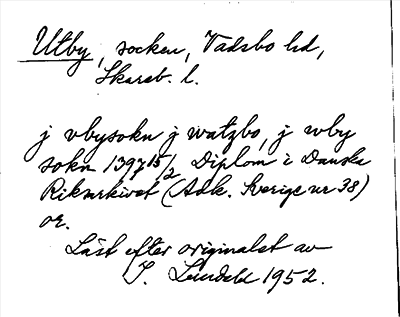 Utby, socken, Vadsbo hd,
Skarab. l.
j vbysokn j watzbo, j wby
sokn 1397 15/2 Diplom i Danska
Riksarkivet (Avd. Sverige nr 38)
or.
Läst efter originalet av
I. Lundahl 1952.